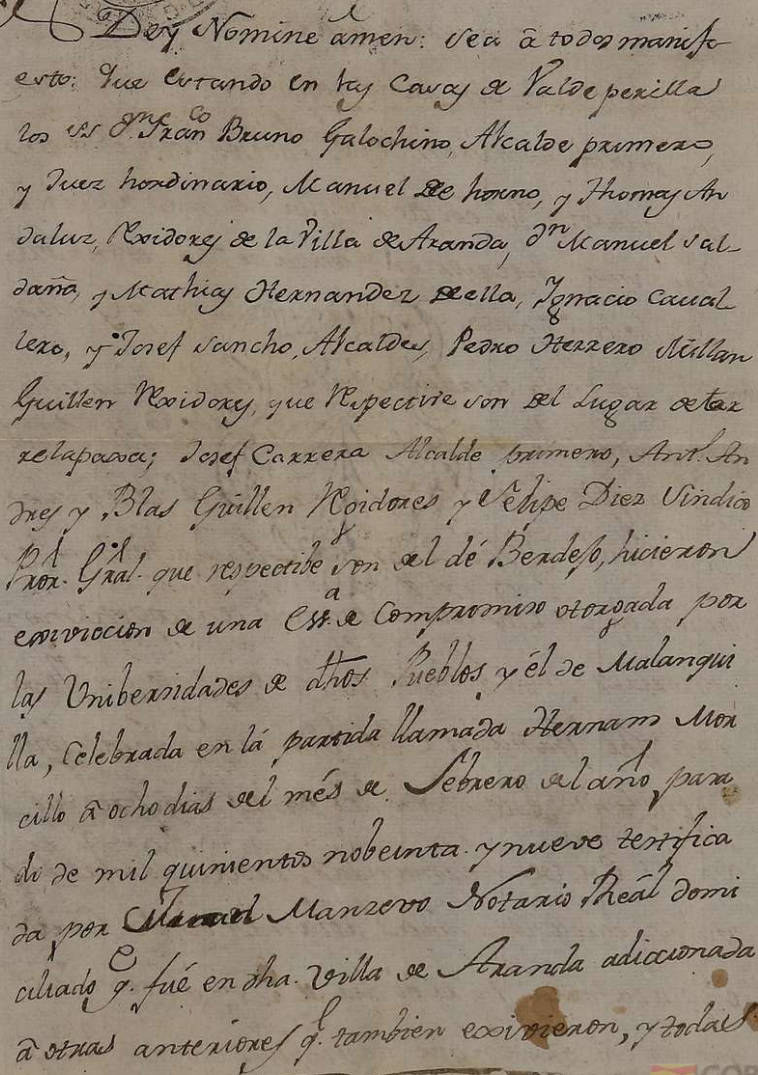 Dey Nomine amen: Sea â todos manifi-
esto: Que estando en las Casas de Valdeperilla
los ss.s dn. Franco Bruno Galochino, Alcalde primero,
y Juez hordinario, Manuel de horno, y Thomas An
daluz, Rexidores de la Villa de Aranda, dn Manuel Sal-
daña, y Mathias Hernandez de ella, Ignacio Caual-
lero, y Josef Sancho, Alcaldes, Pedro Herrero Millan
Guillen Rexidores, que Respective son del Lugar de tor
relapaxa; Josef Carrera Alcalde primero, Antt. An
dres y Blas Guillen Rexidores y Felipe Diez Sindico
Pror. Gral. que respectibe son del dé Berdejo, hicieron
exivicion de una Essa. de Compromiso otorgada por
las Unibersidades de dhos Pueblos y él de Malanqui
lla, Celebrada en lá partida llamada Hernam Mor
cillo â ocho dias del més de Febrero del año para
di de mil quinientos nobeinta y nueve testifica
da por Manzevo Notario Reál domi
ciliado q.e fué en dha. Villa de Aranda adiccionada
â otras anteriores q.e tambien exivieron, y todas